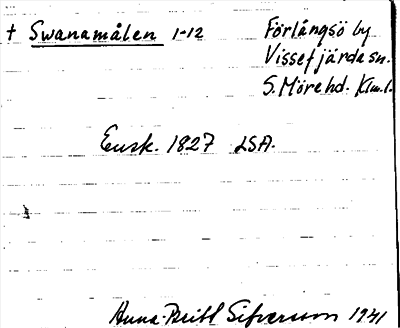 † Swanamålen 1-12 Förlångsö by
Vissefjärda sn.
S. Möre hd. Klm.l.
Ensk. 1827 LSA.
Anna-Britt Sifversson 1941